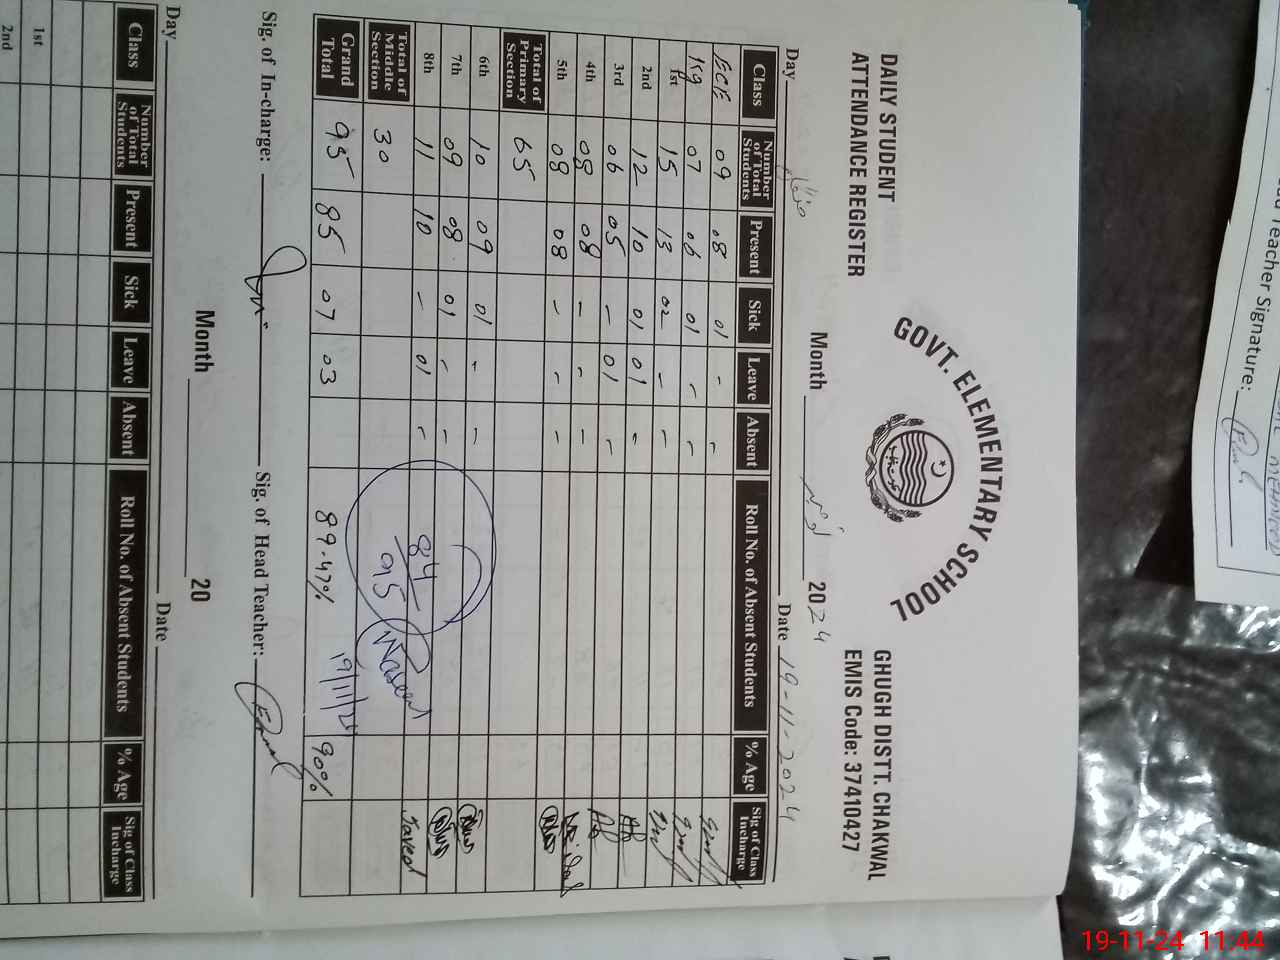 DAILY STUDENT
ATTENDANCE REGISTER
GOVT. ELEMENTARY SCHOOL
GHUGH DISTT. CHAKWAL
EMIS Code: 37410427
Day Month نومبر 2024 Date 19-11-2024
Class Number of Total Students Present Sick Leave Absent Roll No. of Absent Students % Age Sig of Class Incharge
ECE 09 08 01 - -
Kg 07 06 01 - -
1st 15 13 02 - -
2nd 12 10 01 01 -
3rd 06 05 - 01 -
4th 08 08 - - -
5th 08 08 - - -
Total of Primary Section 65
6th 10 09 01 - -
7th 09 08 01 - -
8th 11 10 - 01 - Javed
Total of Middle Section 30
84
95
Grand Total 95 85 07 03 89.47% 90%
19/11/24
Sig. of In-charge: Sig. of Head Teacher:
Month 20
Day Date
Class Number of Total Students Present Sick Leave Absent Roll No. of Absent Students % Age Sig of Class Incharge
1st
2nd
Teacher Signature:
19-11-24 11:44